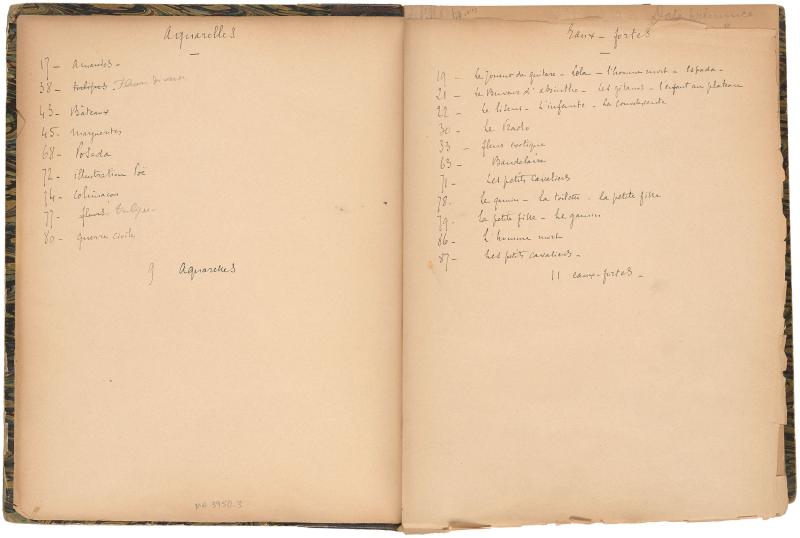 Aquarelles
17 - Amandes -
38 - tulipes - Fleurs diverses
43 - Bâteaux
45 - marguerites
68 - Poseda
72 - illustration Poë
74 - Colimaçon
77 - fleurs tulipe -
80 - guerre civile
9 Aquarelles
MA 3950.3
Eaux-fortes
19 - Le Joueur de guitare - Lola - l'homme mort - Espada -
21 - Le Buveur d'absinthe - Les gitanos - l'enfant au plateau
22 - Le liseur - L'infante - La convalescente
30 - Le Prado
33 - fleur exotique
63 - Baudelaire
71 - Les petits cavaliers
78 - Le gamin - La toilette - La petite fille
79 - La petite fille - Le gamin
86 - L'homme mort
87 - Les petits cavaliers -
11 eaux-fortes -